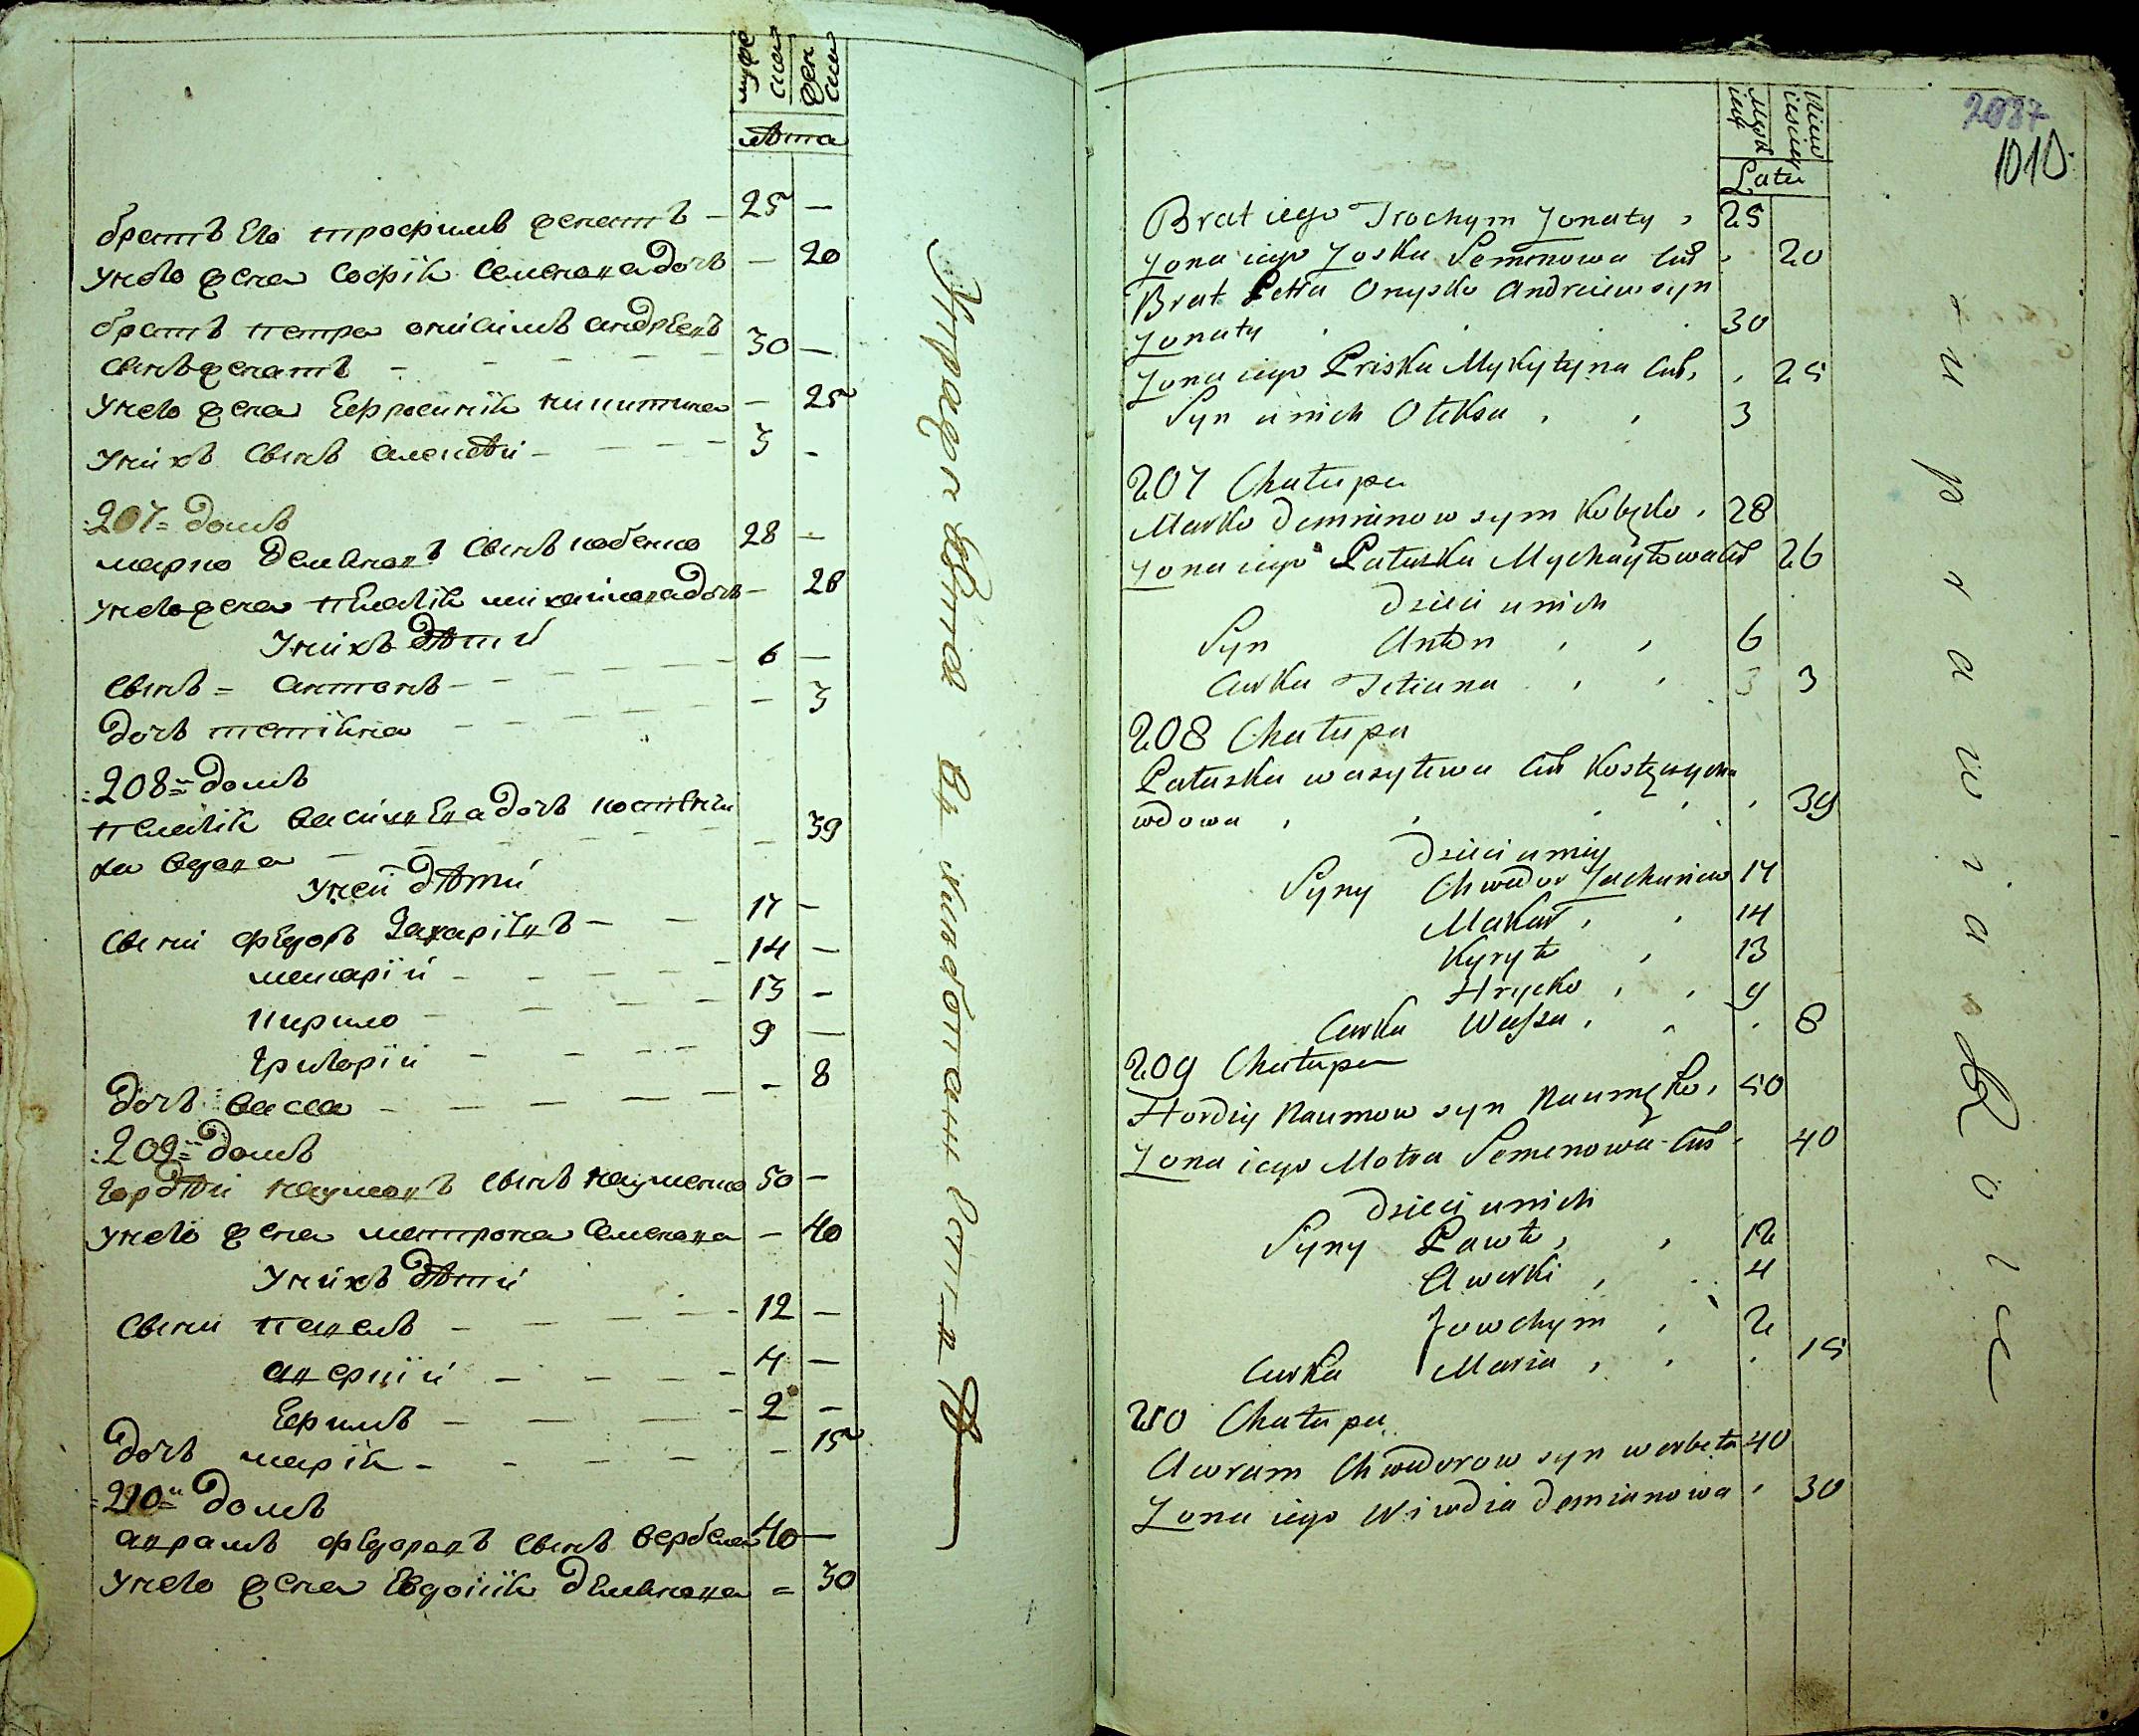 муже
ска
жен
ска
лѣта
братъ Его трофимъ женатъ – 25 –
Унего жена Софія Семеновадочь – 20
братъ петра онисимъ андреевъ
сынъ женатъ – 30 –
Унего жена Ефросинія никитина – 25
Унихъ сынъ алексѣй – 3 –
:207= домъ
марко демяновъ сынъ кобенко 28 –
унегожена пелагія михайловадочь – 26
Унихъ дѣти
сынъ = антонъ – 6 –
дочь тетіяна – 3
:208= домъ
пелагія василЕва дочь
ха вдова – 39
Уней дѣти
сыни фЕдоръ Захаріевъ – 17 –
макарій – 14 –
Кирило – 13 –
григорій – 9 –
дочь васса – 8
:209= домъ
гордѣй наумовъ сынъ науменко 50 –
унего жена матрона Семенова – 40
Унихъ дѣти
сыни павелъ – 12 –
аверкій – 4 –
Ефимъ – 2 –
дочь марія – 15
=210= домъ
аврамъ фЕдоровъ сынъ вербела 40 –
унего жена Евдокія демянова = 30
męzk
ie
Niew
ieście
Lata
2087
1010.
Brat iego Trochym Zonaty , 25
Zona iego Zoska Semenowa cur , 20
Brat Petra Onysko Andreiew syn
Zonaty . . . 30
Zona iego Priska Mykytyna cur, , 25
Syn u nich Oleksa , , 3
207 Chałupa
Marko Demianow syn Kobęko , 28
Zona iego Pałaszka Mychayłowacur 26
Dzieci u nich
Syn Anton , , 6
Curka Tetiana , , 3 3
208 Chałupa
Pałaszka wasylewa cur
wdowa , , , , , 39
Dzieci u niey
Syny Chwedor Zachariew 17
Makar , , 14
Kyryło , 13
Hrycko , , 9
Curka Wassa , , . 8
209 Chałupa
Hordiy Naumow syn Naumęko, 50
Zona iego Motra Semenowa cur , 40
Dzieci u nich
Syny Pawło, , 12
Awerki , . 4
Jowchym , 2
Curka Maria , , . 15
210 Chałupa
Awram Chwedorow syn werbeła 40
Zona iego Wiwdia Demianowa , 30